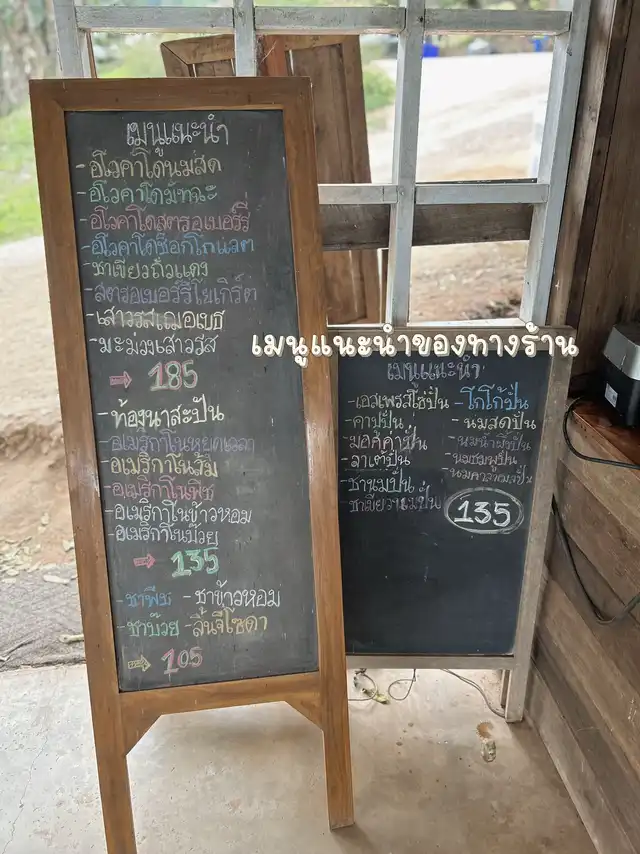 เมนูแนะนำ
-อโวคาโดนมสด
-อโวคาโดมัทฉะ
-อโวคาโดสตรอเบอร์รี่
-อโวคาโดช็อกโกแลต
-ชาเขียวถั่วแดง
-สตรอเบอร์รี่โยเกิร์ต
-เสาวรสเฌอเบธ
-มะม่วงเสาวรส
⇨ 185
-ท้องนาสะปัน
-อเมริกาโนหยดเวลา
-อเมริกาโนส้ม
-อเมริกาโนพีช
-อเมริกาโนข้าวหอม
-อเมริกาโนบ๊วย
⇨ 135
-ชาพีช -ชาข้าวหอม
-ชาบ๊วย -ลิ้นจี่โซดา
⇨ 105
เมนูแนะนำของทางร้าน
เมนูแนะนำ
-เอสเพรสโซ่ปั่น -โกโก้ปั่น
-คาปูปั่น -นมสดปั่น
-มอคู่ค่าปั่น -นมน้ำผึ้งปั่น
-ลาเต้ปั่น -นมชมพูปั่น
-ชานมปั่น -นมคาราเมลปั่น
-ชาเขียวนมปั่น
135